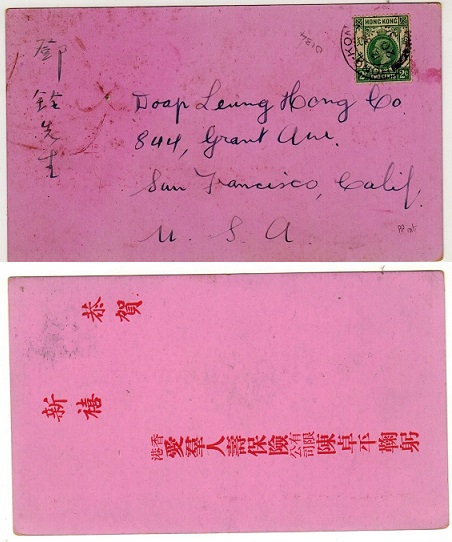 鄧銓先生
HONG KONG
TWO CENTS
2c
Doap Leung Hong Co.
844, Grant Ave.
San Francisco, Calif.
U. S. A
恭賀
新禧
香港愛羣人壽保險有限公司陳卓平鞠躬